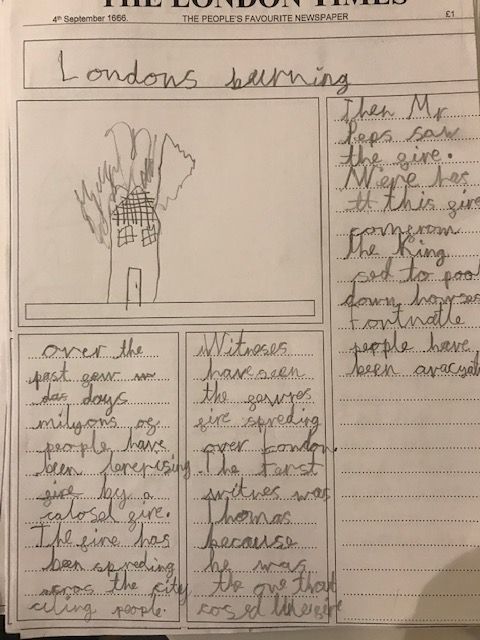 THE LONDON TIMES
4th September 1666. THE PEOPLE'S FAVOURITE NEWSPAPER £1
Londons burning
over the
past gew
das days
milyons og
people have
been terrising
gire by a
calosel gire.
The gire has
been spreding
acros the city
ciling people.
Witneses
have seen
the
gire spreding
over London.
The ferst
witnes was
Thomas
because
he was
the one that
cosed the gire
Then Mr
Peps saw
the gire.
Were has
this gire
comgrom
the King
sed to pool
down howses
Fortnatle
people have
been avacyat